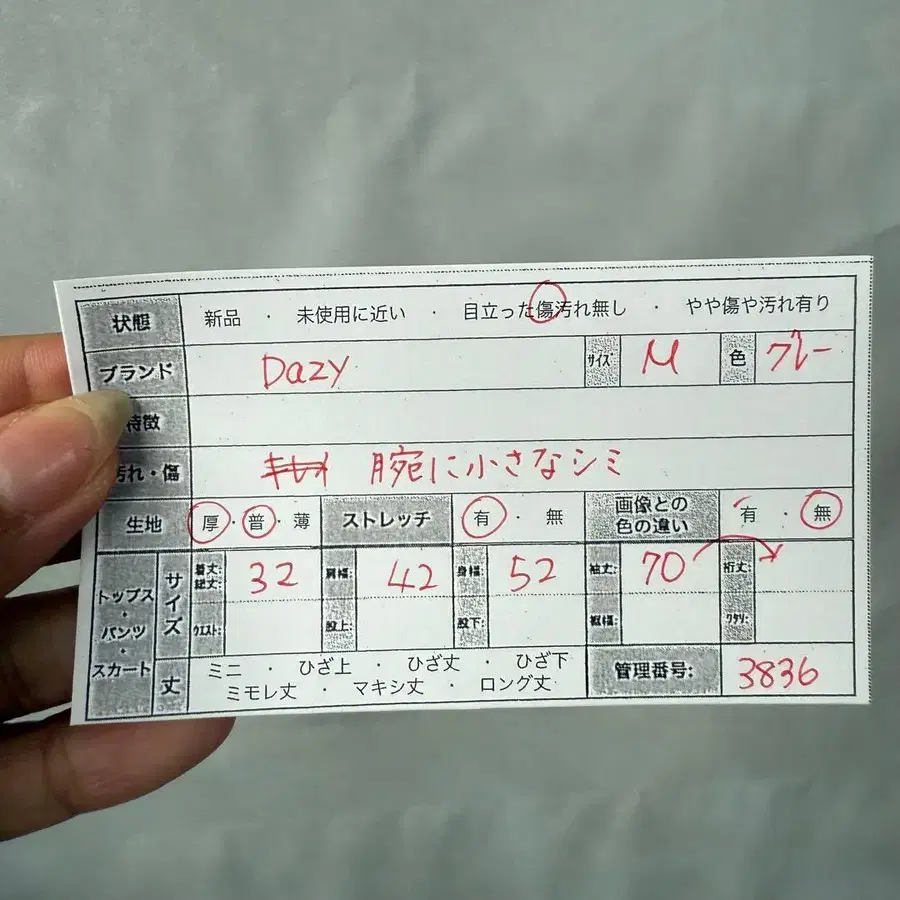 状態 新品 ・ 未使用に近い ・ 目立った傷汚れ無し ・ やや傷や汚れ有り
ブランド Dazy サイズ: M 色 グレー
特徴
汚れ・傷 腕に小さなシミ
生地 厚・普・薄 ストレッチ 有 ・ 無 画像との色の違い 有 ・ 無
トップス・パンツ・スカート サイズ 着丈:総丈: 32 肩幅: 42 身幅: 52 袖丈: 70 裄丈:
ウエスト: 股上: 股下: 裾幅: ワタリ:
丈 ミニ ・ ひざ上 ・ ひざ丈 ・ ひざ下
ミモレ丈 ・ マキシ丈 ・ ロング丈
管理番号: 3836